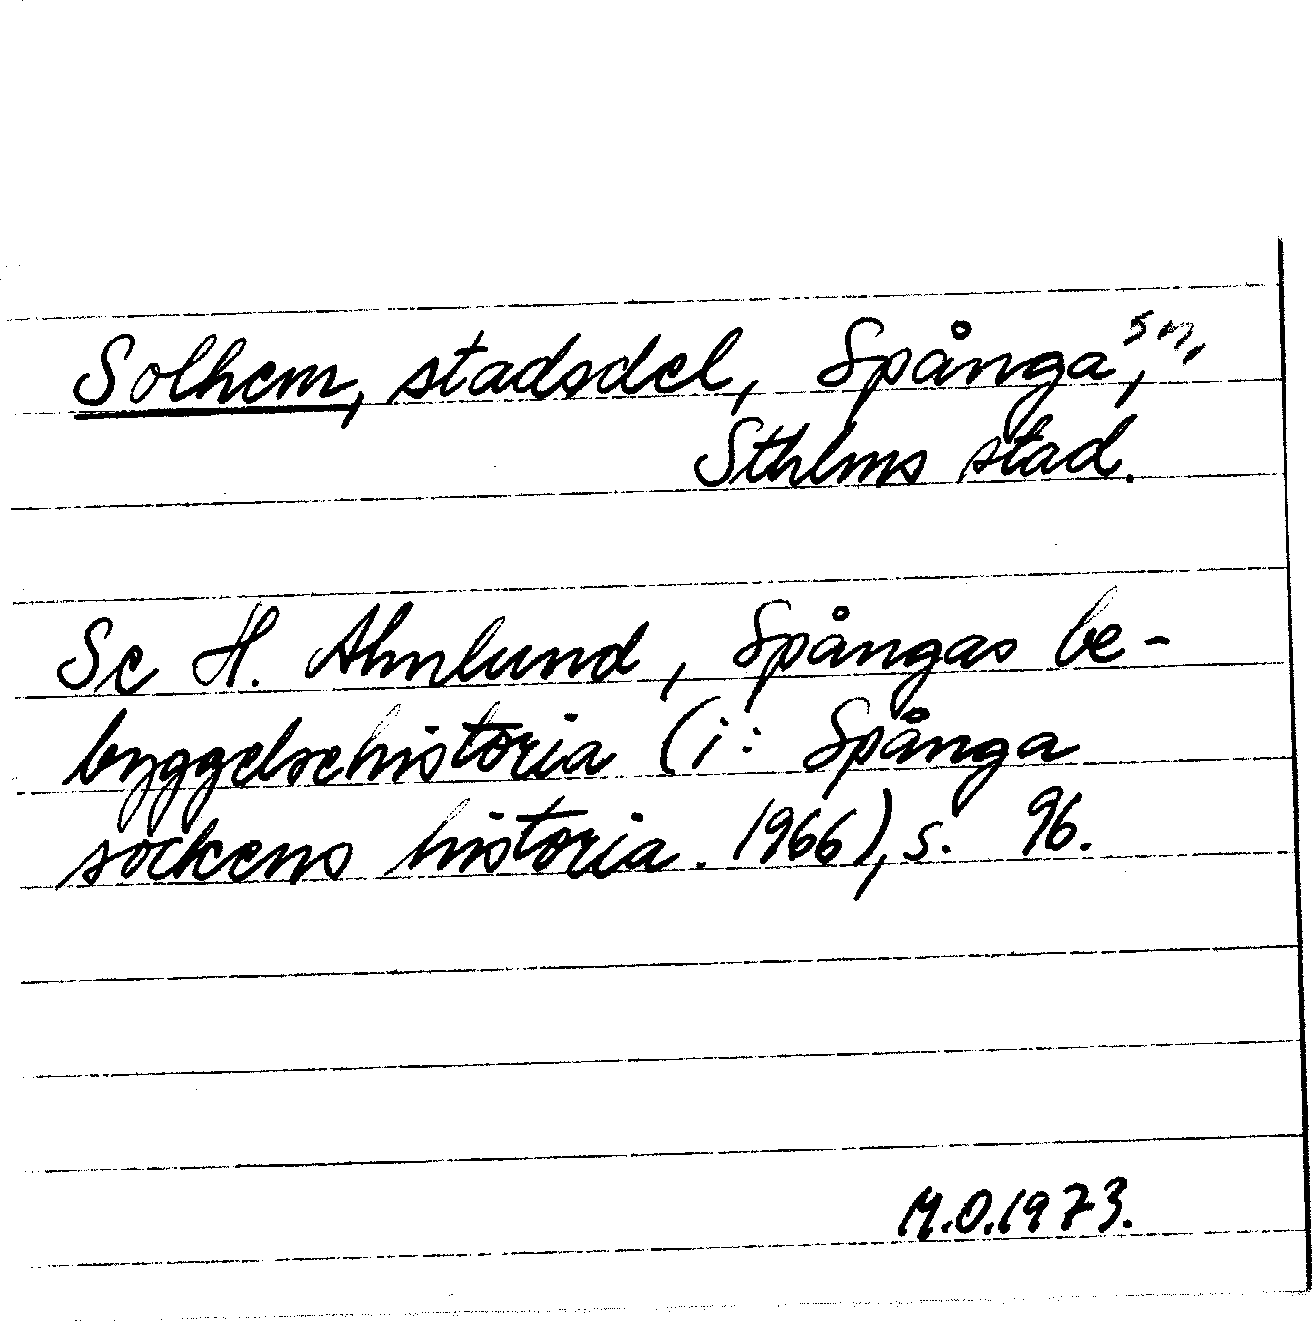 Solhem, stadsdel, Spånga, sn,
Sthlms stad.
Se H. Ahnlund, Spångas be-
byggelsehistoria (i: Spånga
sockens historia. 1966), s. 96.
M.O.1973.